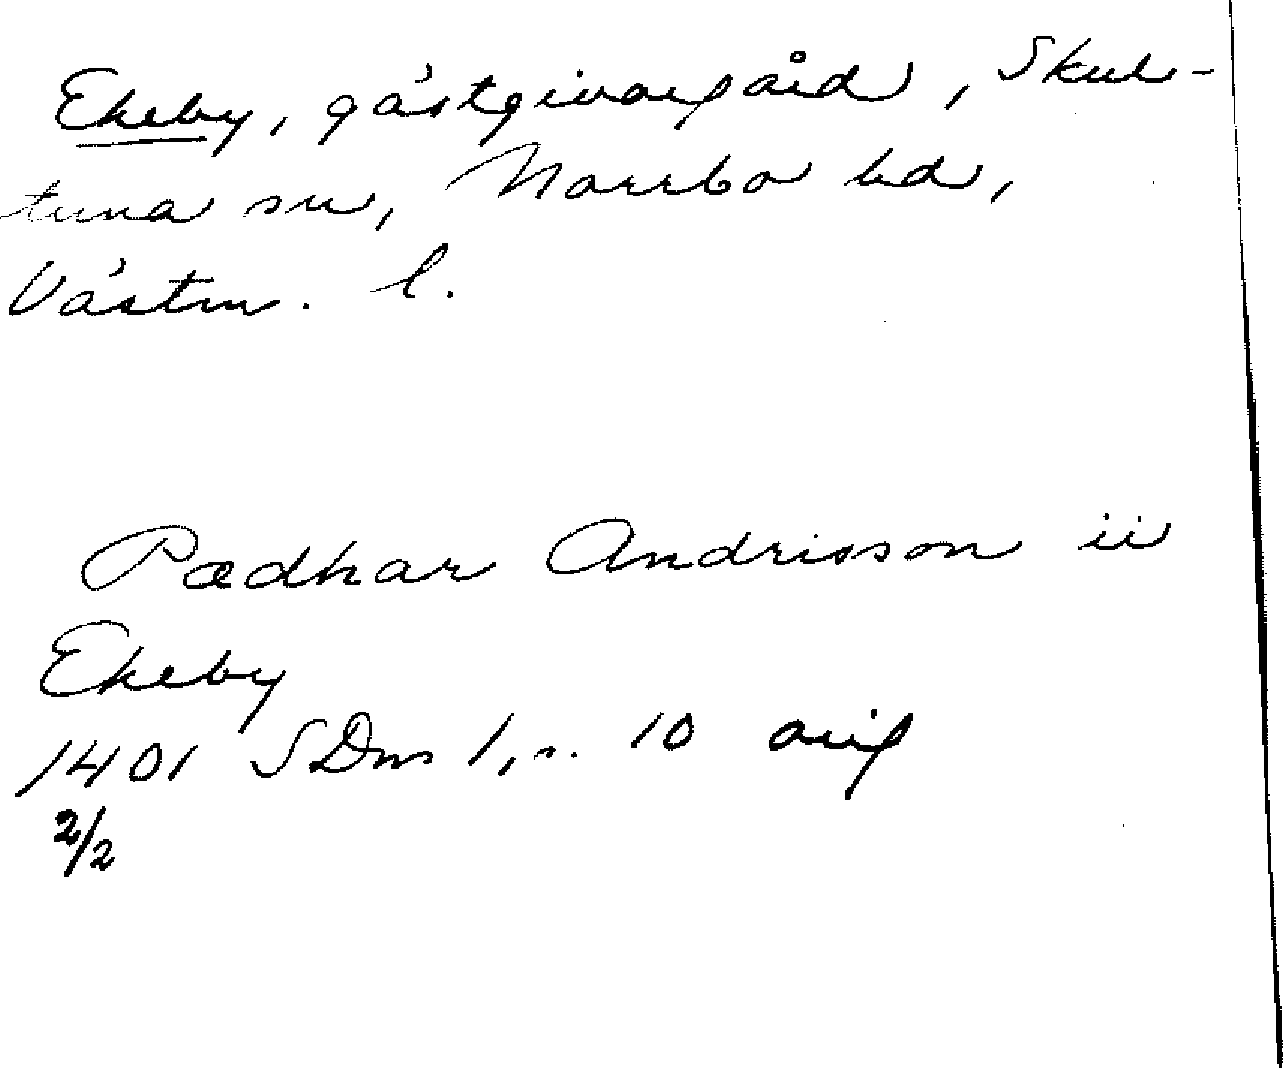 Ekeby, gästgivargård, Skul-
tuna sn, Norrbo hd,
Västm. l.
Pædhar Andrisson ii
Ekeby
1401 SDns 1, s. 10 orig
2/2